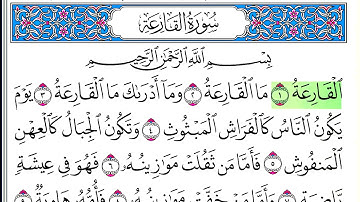 سُورَةُ ٱلْقَارِعَةِ
بِسْمِ ٱللَّهِ ٱلرَّحْمَٰنِ ٱلرَّحِيمِ
ٱلْقَارِعَةُ ١ مَا ٱلْقَارِعَةُ ٢ وَمَآ أَدْرَىٰكَ مَا ٱلْقَارِعَةُ ٣ يَوْمَ
يَكُونُ ٱلنَّاسُ كَٱلْفَرَاشِ ٱلْمَبْثُوثِ ٤ وَتَكُونُ ٱلْجِبَالُ كَٱلْعِهْنِ
ٱلْمَنفُوشِ ٥ فَأَمَّا مَن ثَقُلَتْ مَوَٰزِينُهُۥ ٦ فَهُوَ فِى عِيشَةٍ
رَّاضِيَةٍ ٧ وَأَمَّا مَنْ خَفَّتْ مَوَٰزِينُهُۥ ٨ فَأُمُّهُۥ هَاوِيَةٌ ٩